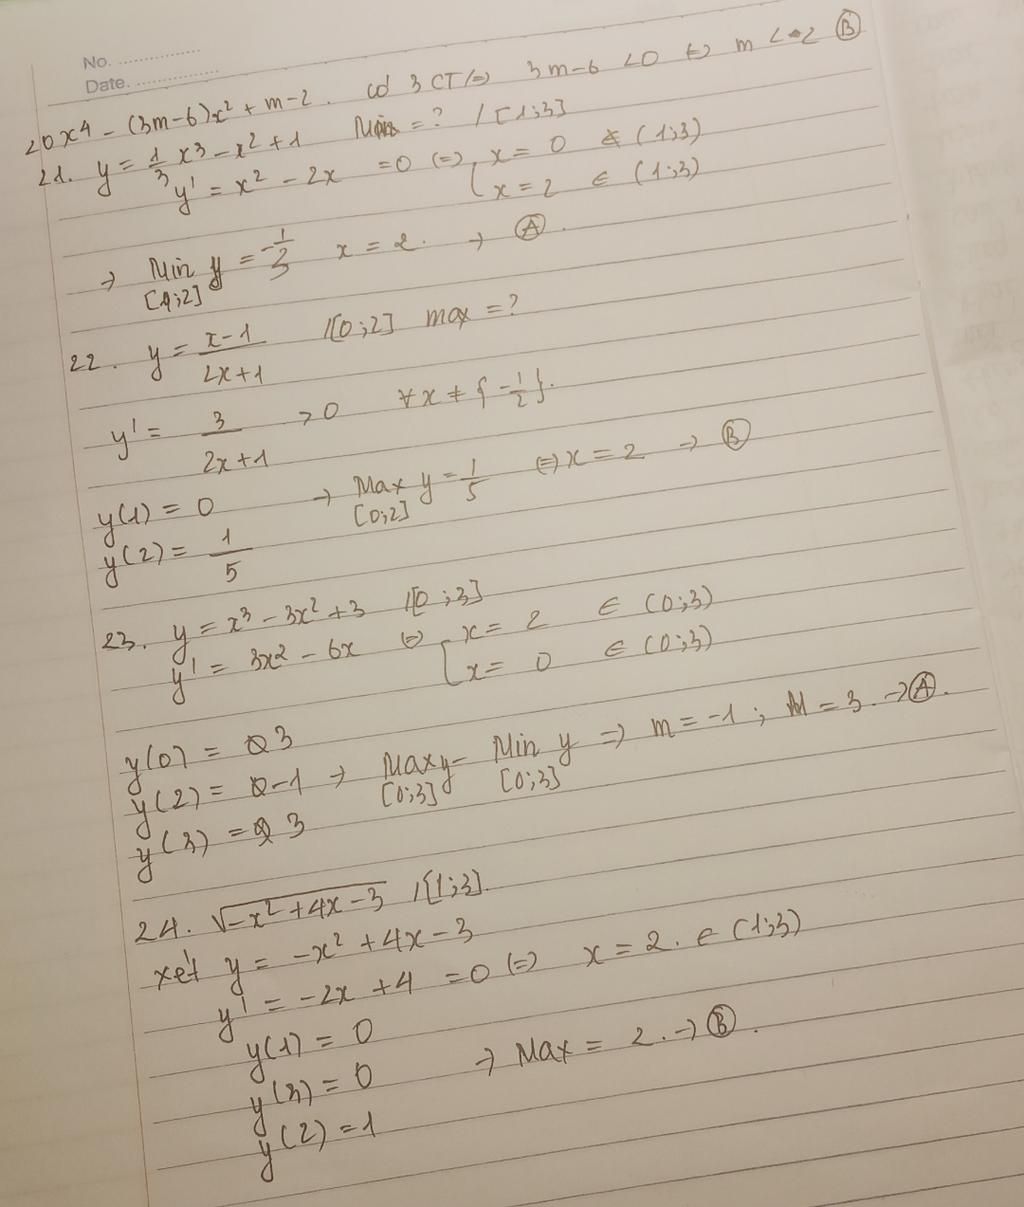 No. ....................
Date. ....................
20 x⁴ - (3m-6)x² + m-2. có 3 CT ⇔ 3m-6 <0 ⇔ m < 2 Ⓑ
21. y = 1/3 x³ - x² + 1 Min = ? / [1;3]
y' = x² - 2x = 0 ⇔ [ x = 0 ∉ (1;3)
x = 2 ∈ (1;3)
→ Min y = -1/3 x = 2. → Ⓐ.
[1;2]
22. y = (x-1)/(2x+1) /[0;2] max = ?
y' = 3/(2x+1) > 0 ∀x ≠ {-1/2}.
y(1) = 0 → Max y = 1/5 ⇔ x = 2 → Ⓑ
[0;2]
y(2) = 1/5
23. y = x³ - 3x² + 3 /[0;3]
y' = 3x² - 6x ⇔ [ x = 2 ∈ (0;3)
x = 0 ∈ (0;3)
y(0) = 3
y(2) = -1 → Max y - Min y ⇒ m = -1 ; M = 3. → Ⓐ.
[0;3] [0;3]
y(3) = 3
24. √(-x² + 4x - 3) /[1;3].
xét y = -x² + 4x - 3
y' = -2x + 4 = 0 ⇔ x = 2. ∈ (1;3)
y(1) = 0
y(3) = 0 → Max = 2. → Ⓑ.
y(2) = 1